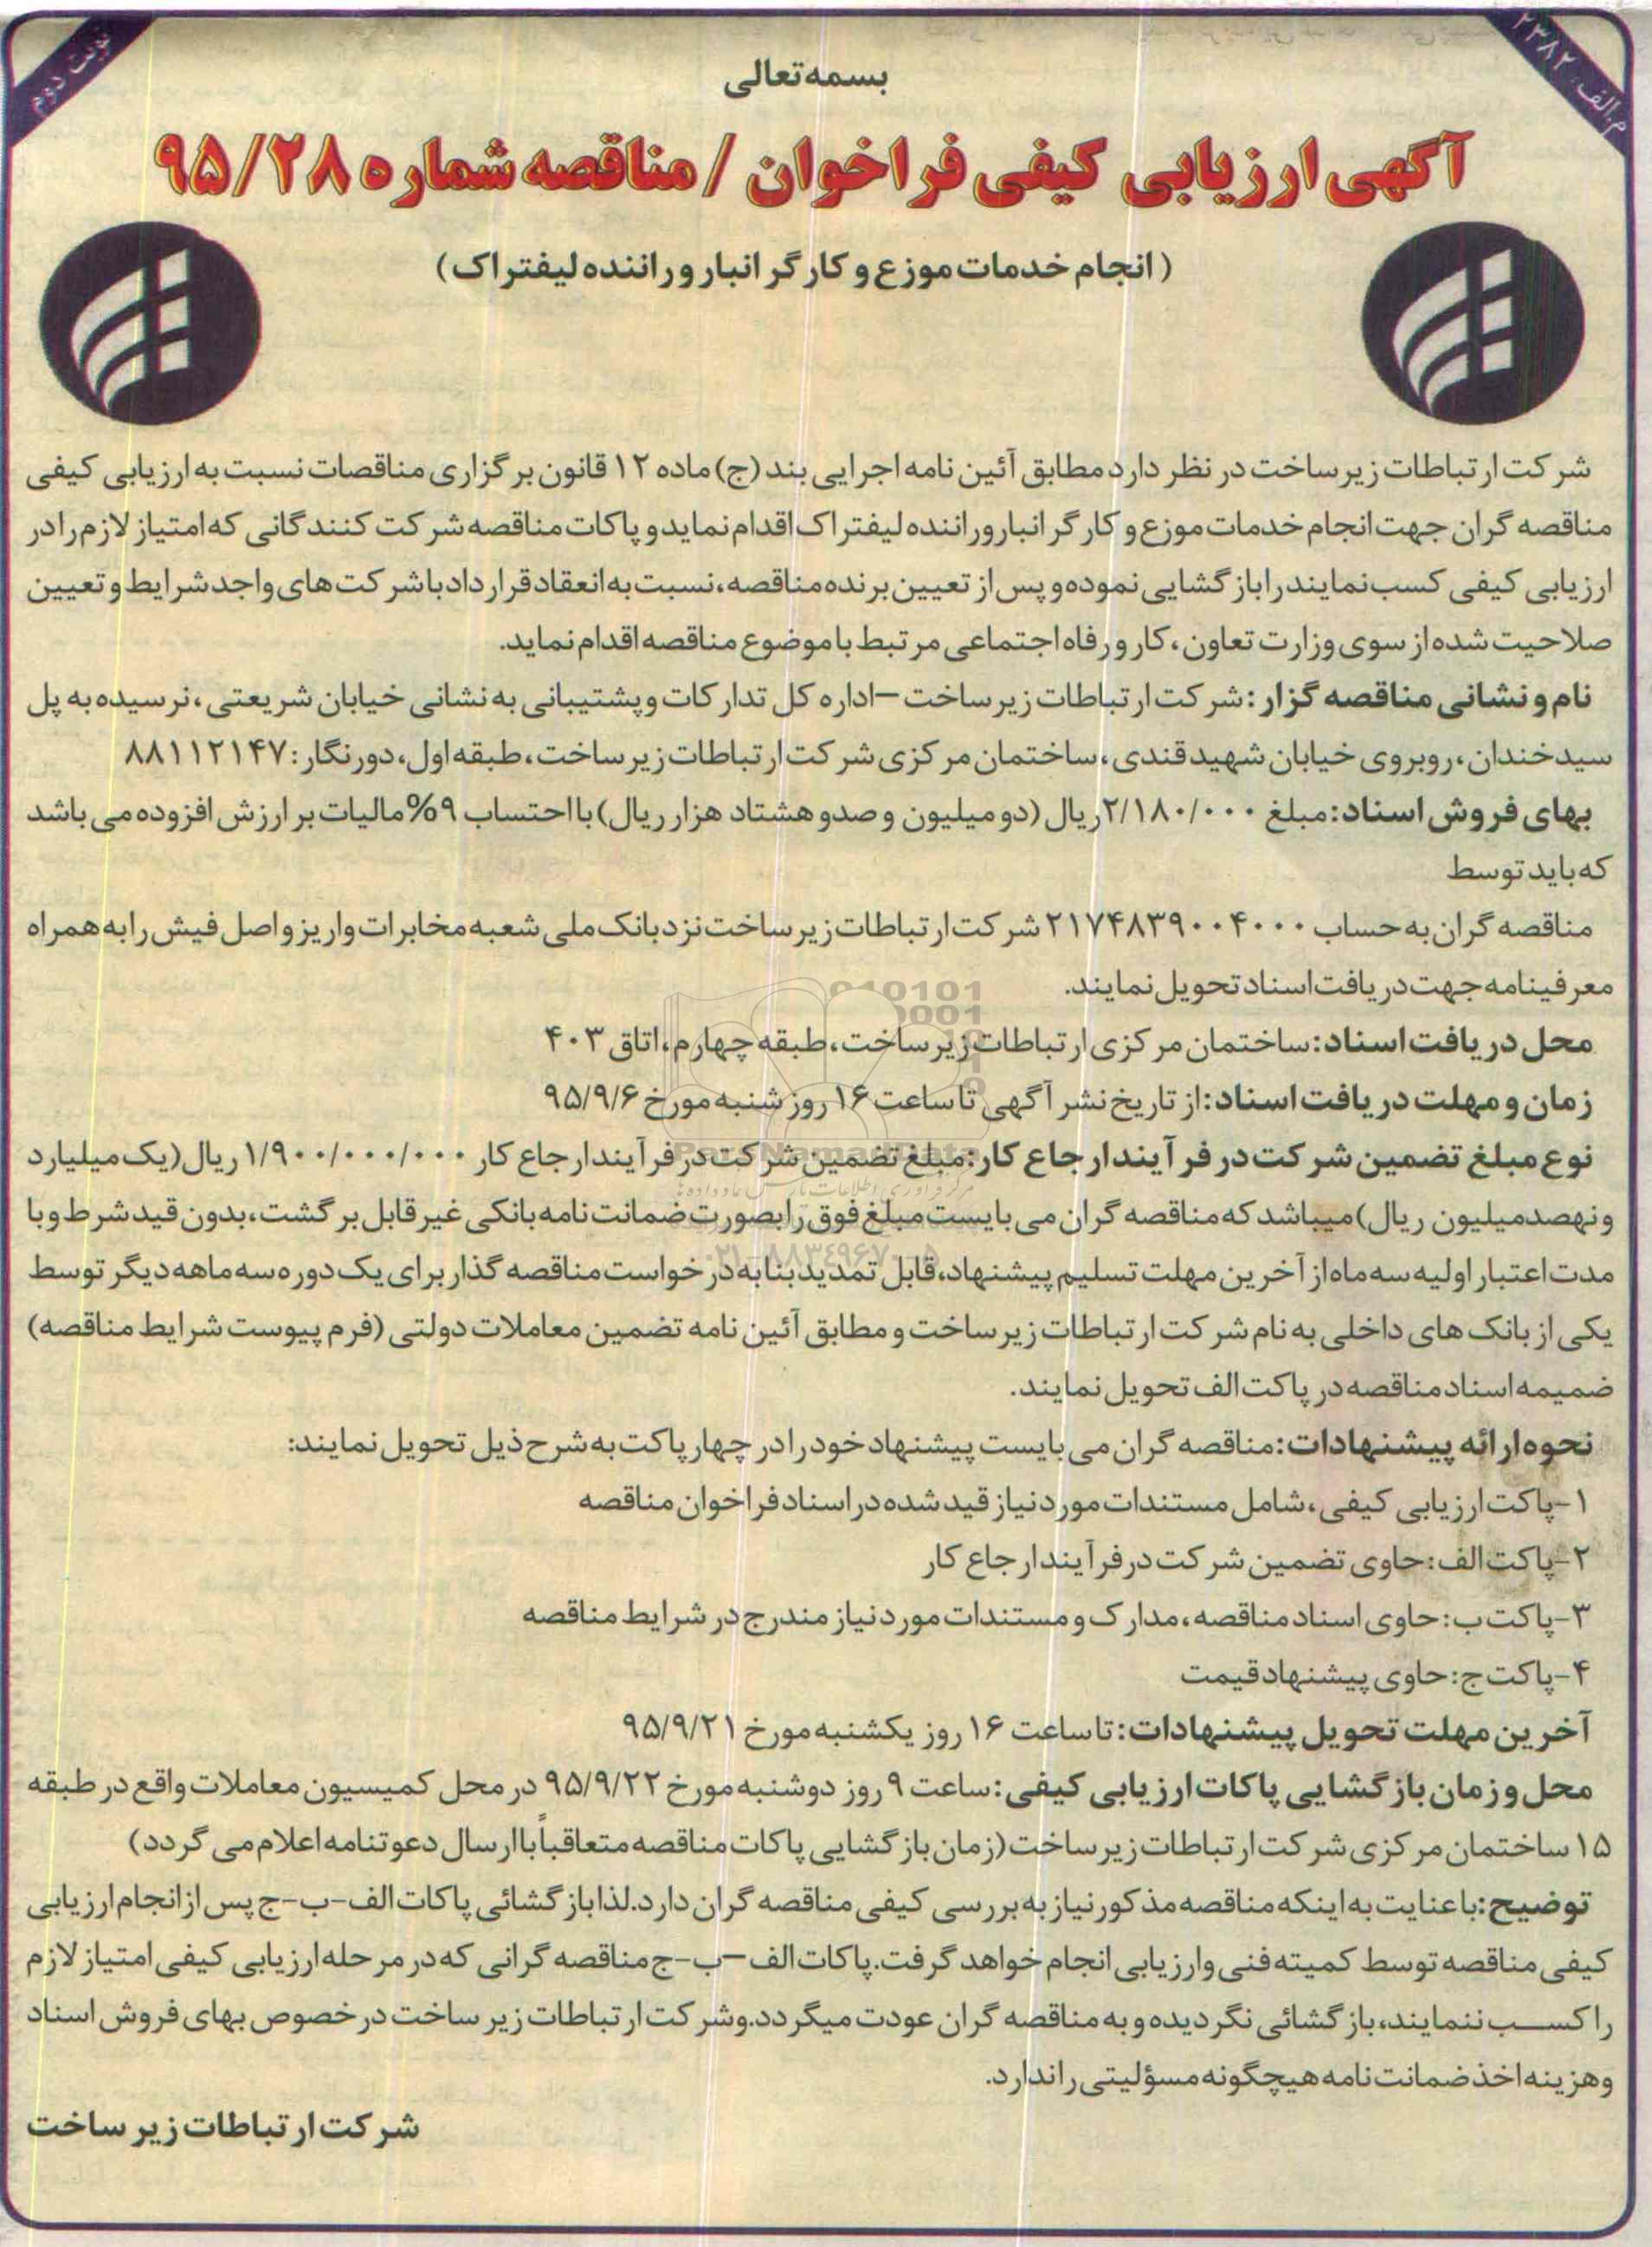 م.الف: ۲۳۸۲
نوبت دوم
بسمه تعالی
آگهی ارزیابی کیفی فراخوان / مناقصه شماره ۹۵/۲۸
( انجام خدمات موزع و کارگر انبار و راننده لیفتراک )
شرکت ارتباطات زیرساخت در نظر دارد مطابق آئین نامه اجرایی بند (ج) ماده ۱۲ قانون برگزاری مناقصات نسبت به ارزیابی کیفی
مناقصه گران جهت انجام خدمات موزع و کارگر انبار و راننده لیفتراک اقدام نماید و پاکات مناقصه شرکت کنندگانی که امتیاز لازم را در
ارزیابی کیفی کسب نمایند را بازگشایی نموده و پس از تعیین برنده مناقصه، نسبت به انعقاد قرارداد با شرکت های واجد شرایط و تعیین
صلاحیت شده از سوی وزارت تعاون، کار و رفاه اجتماعی مرتبط با موضوع مناقصه اقدام نماید.
نام و نشانی مناقصه گزار: شرکت ارتباطات زیرساخت – اداره کل تدارکات و پشتیبانی به نشانی خیابان شریعتی، نرسیده به پل
سیدخندان، روبروی خیابان شهید قندی، ساختمان مرکزی شرکت ارتباطات زیرساخت، طبقه اول، دورنگار: ۸۸۱۱۲۱۴۷
بهای فروش اسناد: مبلغ ۲/۱۸۰/۰۰۰ ریال (دو میلیون و صد و هشتاد هزار ریال) با احتساب ۹% مالیات بر ارزش افزوده می باشد
که باید توسط
مناقصه گران به حساب ۲۱۷۴۸۳۹۰۰۴۰۰۰ شرکت ارتباطات زیرساخت نزد بانک ملی شعبه مخابرات واریز و اصل فیش را به همراه
معرفینامه جهت دریافت اسناد تحویل نمایند.
محل دریافت اسناد: ساختمان مرکزی ارتباطات زیرساخت، طبقه چهارم، اتاق ۴۰۳
زمان و مهلت دریافت اسناد: از تاریخ نشر آگهی تا ساعت ۱۶ روز شنبه مورخ ۹۵/۹/۶
نوع مبلغ تضمین شرکت در فرآیند ارجاع کار: مبلغ تضمین شرکت در فرآیند ارجاع کار ۱/۹۰۰/۰۰۰/۰۰۰ ریال (یک میلیارد
و نهصد میلیون ریال) میباشد که مناقصه گران می بایست مبلغ فوق را بصورت ضمانت نامه بانکی غیر قابل برگشت، بدون قید شرط و با
مدت اعتبار اولیه سه ماه از آخرین مهلت تسلیم پیشنهاد، قابل تمدید بنا به درخواست مناقصه گذار برای یک دوره سه ماهه دیگر توسط
یکی از بانک های داخلی به نام شرکت ارتباطات زیرساخت و مطابق آئین نامه تضمین معاملات دولتی (فرم پیوست شرایط مناقصه)
ضمیمه اسناد مناقصه در پاکت الف تحویل نمایند.
نحوه ارائه پیشنهادات: مناقصه گران می بایست پیشنهاد خود را در چهار پاکت به شرح ذیل تحویل نمایند:
۱-پاکت ارزیابی کیفی، شامل مستندات مورد نیاز قید شده در اسناد فراخوان مناقصه
۲-پاکت الف: حاوی تضمین شرکت در فرآیند ارجاع کار
۳-پاکت ب: حاوی اسناد مناقصه، مدارک و مستندات مورد نیاز مندرج در شرایط مناقصه
۴-پاکت ج: حاوی پیشنهاد قیمت
آخرین مهلت تحویل پیشنهادات: تا ساعت ۱۶ روز یکشنبه مورخ ۹۵/۹/۲۱
محل و زمان بازگشایی پاکات ارزیابی کیفی: ساعت ۹ روز دوشنبه مورخ ۹۵/۹/۲۲ در محل کمیسیون معاملات واقع در طبقه
۱۵ ساختمان مرکزی شرکت ارتباطات زیرساخت (زمان بازگشایی پاکات مناقصه متعاقباً با ارسال دعوتنامه اعلام می گردد)
توضیح: با عنایت به اینکه مناقصه مذکور نیاز به بررسی کیفی مناقصه گران دارد. لذا بازگشائی پاکات الف-ب-ج پس از انجام ارزیابی
کیفی مناقصه توسط کمیته فنی و ارزیابی انجام خواهد گرفت. پاکات الف –ب-ج مناقصه گرانی که در مرحله ارزیابی کیفی امتیاز لازم
را کسب ننمایند، بازگشائی نگردیده و به مناقصه گران عودت میگردد. و شرکت ارتباطات زیرساخت در خصوص بهای فروش اسناد
و هزینه اخذ ضمانت نامه هیچگونه مسؤلیتی را ندارد.
شرکت ارتباطات زیرساخت